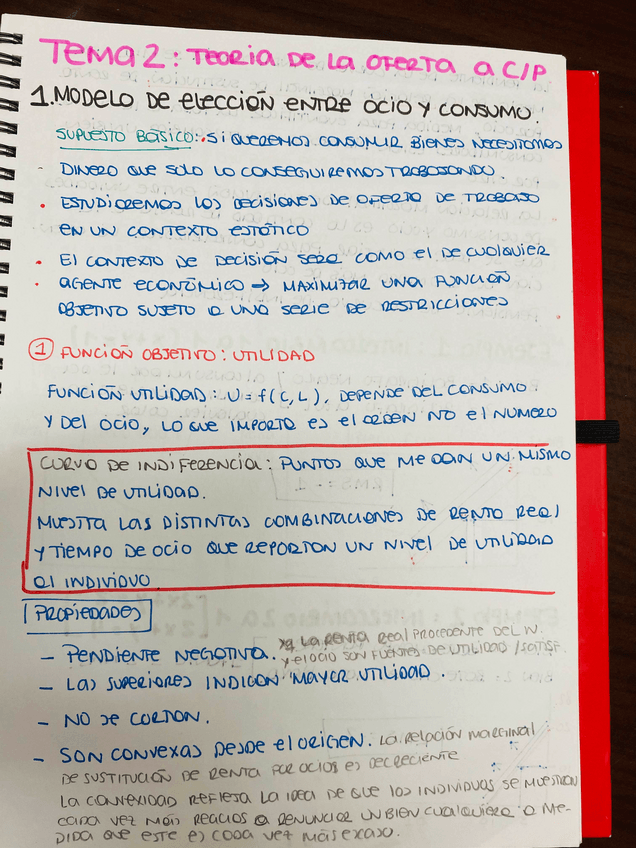 TEMA 2: TEORIA DE LA OFERTA a C/P
1. MODELO DE ELECCIÓN ENTRE OCIO Y CONSUMO.
SUPUESTO BÁSICO: SI QUEREMOS CONSUMIR BIENES NECESITAMOS
DINERO QUE SOLO LO CONSEGUIREMOS TRABAJANDO
• ESTUDIAREMOS LAS DECISIONES DE OFERTA DE TRABAJO
EN UN CONTEXTO ESTÁTICO
• El CONTEXTO DE DECISIÓN SERÁ COMO EL DE CUALQUIER
• AGENTE ECONÓMICO → MAXIMIZAR UNA FUNCIÓN
OBJETIVO SUJETO A UNA SERIE DE RESTRICCIONES
① FUNCIÓN OBJETIVO: UTILIDAD
FUNCIÓN UTILIDAD: U = f(C,L), DEPENDE DEL CONSUMO
Y DEL OCIO, LO QUE IMPORTA ES EL ORDEN NO EL NUMERO
CURVA DE INDIFERENCIA: PUNTOS QUE ME DAN UN MISMO
NIVEL DE UTILIDAD.
MUESTRA LAS DISTINTAS COMBINACIONES DE RENTA REAL
Y TIEMPO DE OCIO QUE REPORTAN UN NIVEL DE UTILIDAD
al INDIVIDUO
PROPIEDADES
- PENDIENTE NEGATIVA. xq LA RENTA REAL PROCEDENTE DEL N.
y el OCIO SON FUENTES DE UTILIDAD / SATISF
- LAS SUPERIORES INDICAN MAYER UTILIDAD.
- NO SE CORTAN.
- SON CONVEXAS DESDE el ORIGEN. LA RELACIÓN MARGINAL
DE SUSTITUCIÓN DE RENTA POR OCIO ES DECRECIENTE
LA CONVEXIDAD REFLEJA LA IDEA DE QUE LOS INDIVIDUOS SE MUESTRAN
CADA VEZ MÁS REACIOS A RENUNCIAR UN BIEN CUALQUIERA A ME-
DIDA QUE ESTE ES CADA VEZ MÁS EXASO.